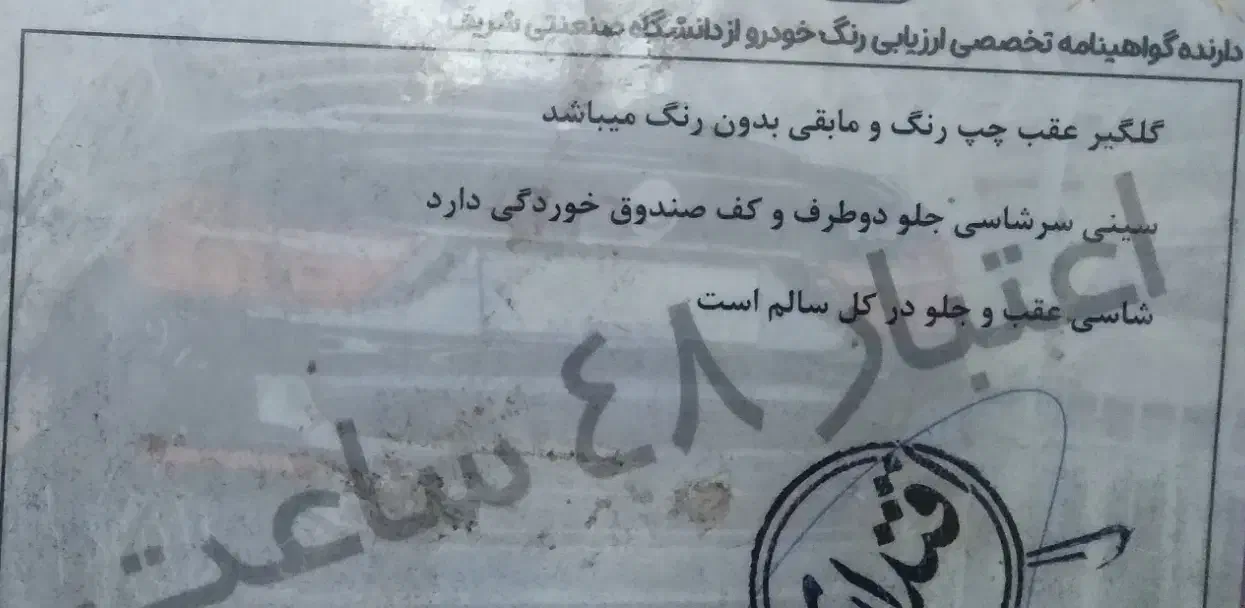 دارنده گواهینامه تخصصی ارزیابی رنگ خودرو از دانشگاه صنعتی شریف
گلگیر عقب چپ رنگ و مابقی بدون رنگ میباشد
سینی سرشاسی جلو دوطرف و کف صندوق خوردگی دارد
شاسی عقب و جلو در کل سالم است
اعتبار ٤٨ ساعت